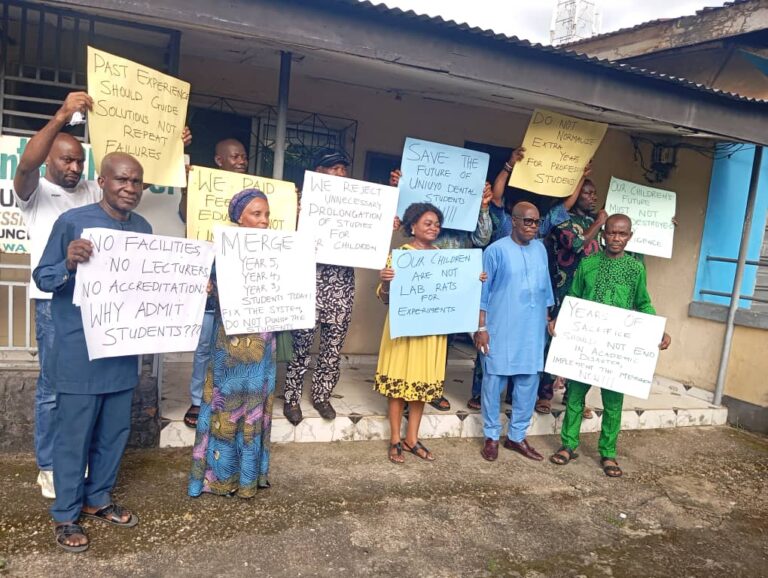 PAST EXPERIENCE
SHOULD GUIDE
SOLUTIONS NOT
REPEAT
FAILURES
WE PAID
FEE
EDU
NO FACILITIES,
NO LECTURERS,
NO ACCREDITATION.
WHY ADMIT
STUDENTS???
MERGE
YEAR 5,
YEAR 4,
YEAR 3,
STUDENTS TODAY!
FIX THE SYSTEM,
DO NOT PUNISH THE
STUDENTS
WE REJECT
UNNECESSARY
PROLONGATION
OF STUDIES
FOR
CHILDREN
SAVE THE
FUTURE OF
UNIUYO DENTAL
STUDENTS!!!!
OUR CHILDREN
ARE NOT
LAB RATS
FOR
EXPERIMENTS
DO NOT
NORMALIZE
EXTRA
YEARS
FOR PROFESSI
OUR CHILDREN'S
FUTURE
MUST NOT
DESTROYED
YEARS OF
SACRIFICE
SHOULD NOT END
IN ACADEMIC
DISASTER,
IMPLEMENT THE MERGER
NOW!!!!